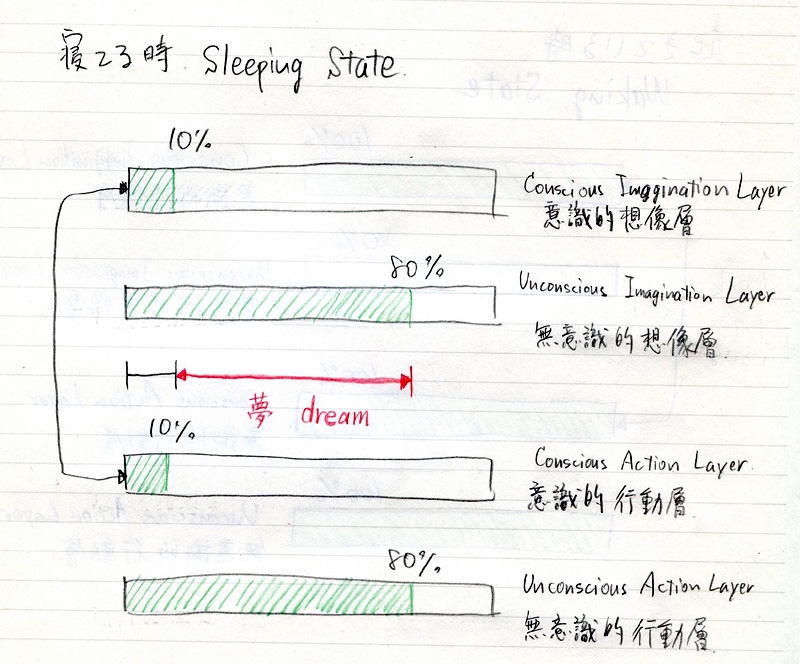 寝てる時 Sleeping State
10%
Conscious Imagination Layer
意識的想像層
80%
Unconscious Imagination Layer
無意識的想像層
夢 dream
10%
Conscious Action Layer
意識的行動層
80%
Unconscious Action Layer
無意識的行動層